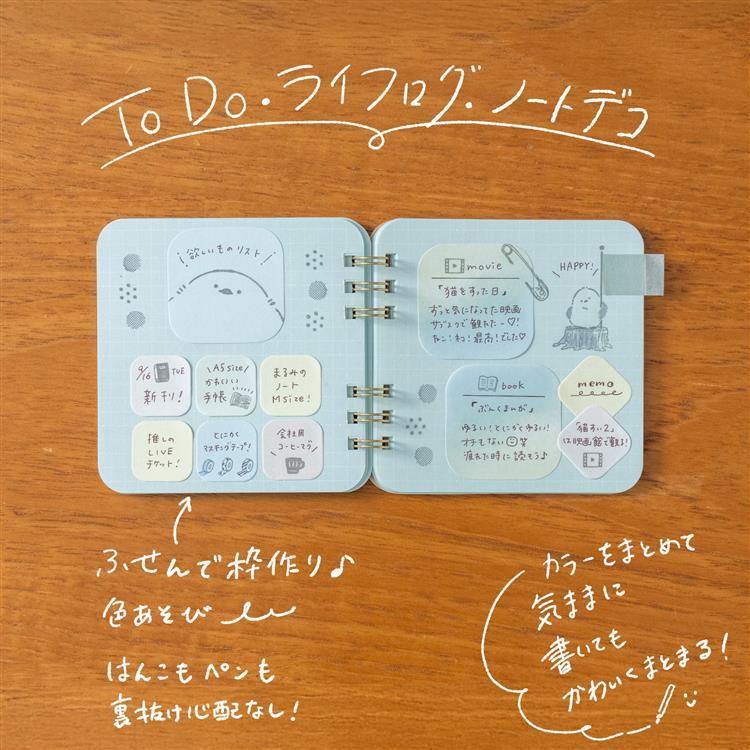 To Do・ライフログ・ノートデコ
欲しいものリスト
9/16 TUE
新刊！
A5size
かわいい
手帳
まるみの
ノート
Msize！
推しの
LIVE
チケット！
とにかく
マスキングテープ！
会社用
コーヒーマグ
movie
「猫をすった日」
ずっと気になってた映画
サブスクで観れたー♡！
ねこ！ね！最高！でした♡
HAPPY！
book
「ぶんくまんが」
ゆるい！とにかくゆるい！
オチもない☺笑
疲れた時に読もう♪
memo
「猫すい2」
は映画館で観る！
ふせんで枠作り♪
色あそび
はんこもペンも
裏抜け心配なし！
カラーをまとめて
気ままに
書いても
かわいくまとまる！